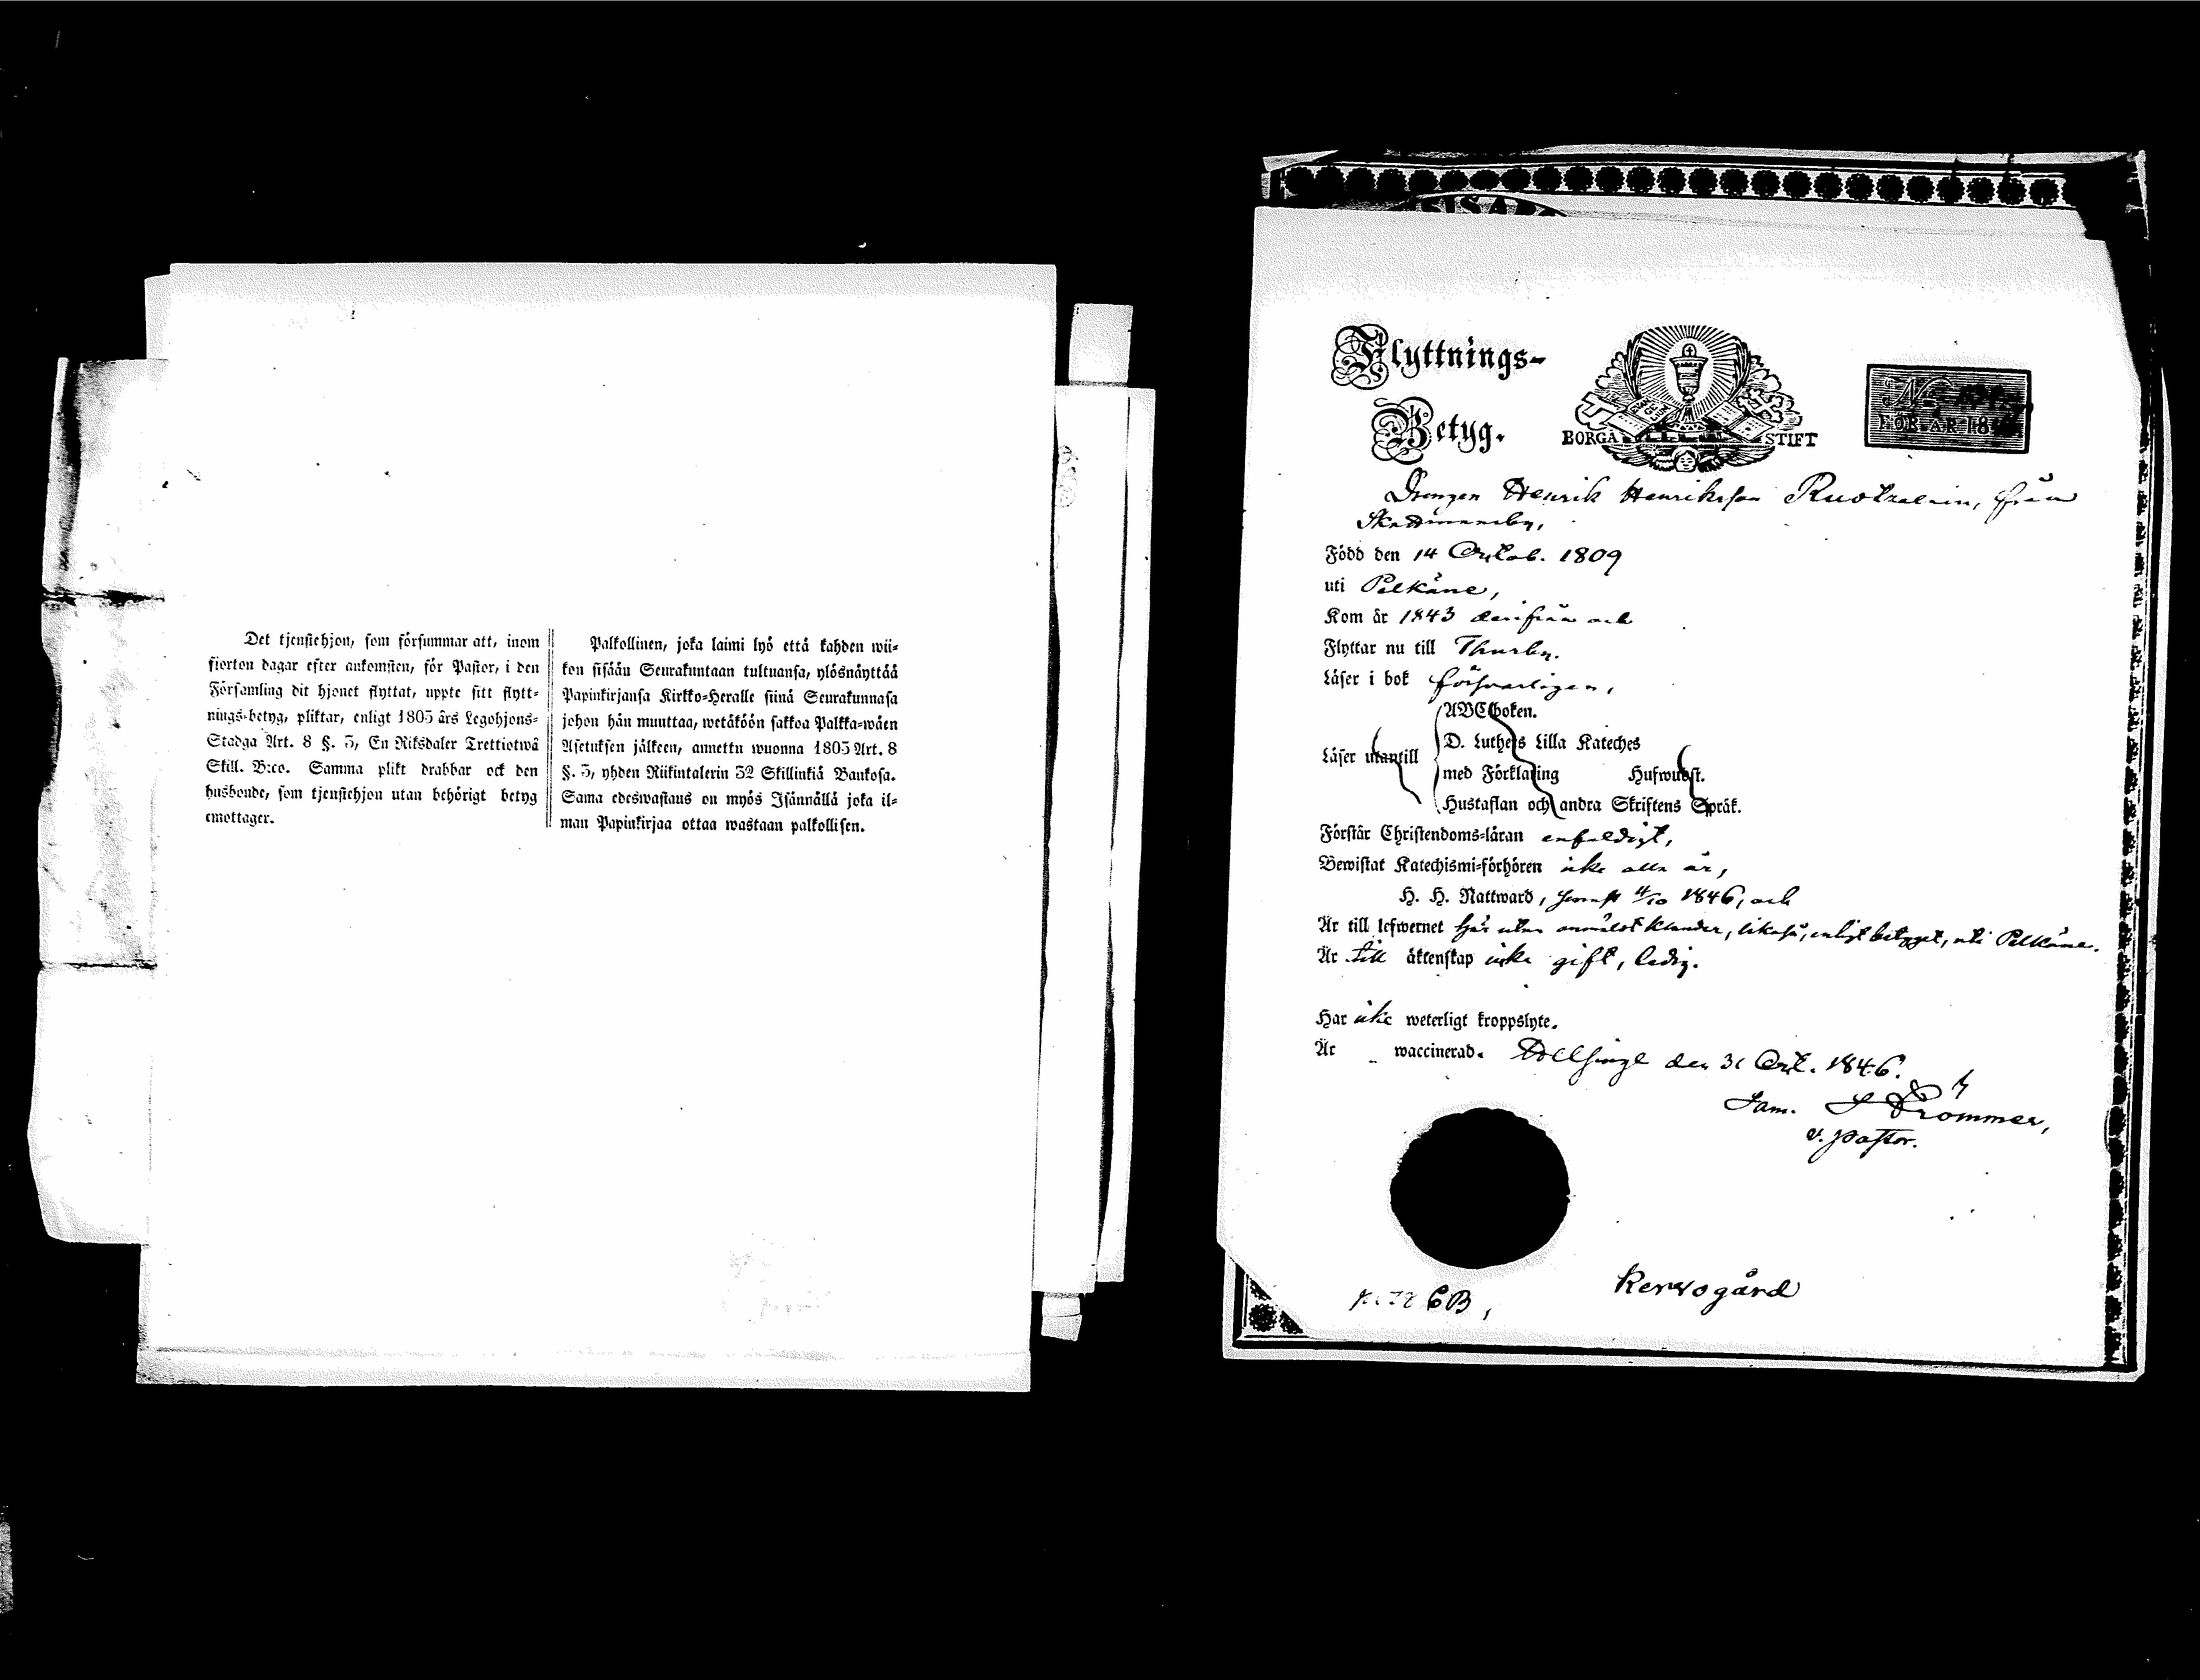 Det tjenstehjon, som försummar att, inom
fjorton dagar efter ankomsten, för Pastor, i den
Församling dit hjonet flyttat, uppte sitt flytt-
nings-betyg, pliktar, enligt 1805 års Legohjons-
Stadga Art. 8 §. 5, En Riksdaler Trettiotwå
Skill. B:co. Samma plikt drabbar ock den
husbonde, som tjenstehjon utan behörigt betyg
emottager.
Palkollinen, joka laimi lyö että kahden wii-
kon sisään Seurakuntaan tultuansa, ylösnäyttää
Papinkirjansa Kirkko-Heralle siinä Seurakunnasa
johon hän muuttaa, wetäköön sakkoa Palkka-wäen
Asetuksen jälkeen, annettu wuonna 1805 Art. 8
§. 5, yhden Riikintalerin 32 Skillinkiä Bankosa.
Sama edeswastaus on myös Isännällä joka il-
man Papinkirjaa ottaa wastaan palkollisen.
Flyttnings-
Betyg.
BORGÅ STIFT
FÖR ÅR 18
Drengen Henrik Henriksson Ruotzalain, från
Född den 14 Octob. 1809
uti Pelkäne,
Kom år 1843 derifrån och
Flyttar nu till Thurby.
Läser i bok försvarligen,
Läser utantill
ABCboken.
D. Luthers Lilla Kateches
med Förklaring Hufwudst.
Hustaflan och andra Skriftens Språk.
Förstår Christendoms-läran enfaldigt,
Bewistat Katechismi-förhören icke alla år,
H. H. Nattward, senast 4/10 1846, och
Är till lefwernet här utan anmäldt klander, likaså, enligt betyget, uti Pelkäne.
Är till äktenskap icke gift, ledig.
Har icke weterligt kroppslyte.
Är waccinerad. den 31 Oct. 1846.
Sam. Strömmer,
v. pastor.
Kervogård